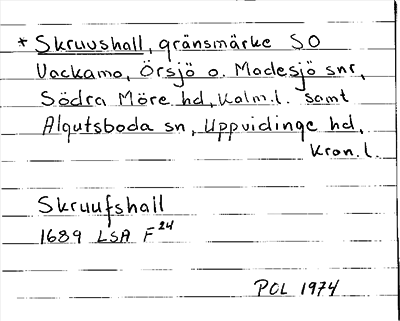 * Skruvshall, gränsmärke SO
Vackamo, Örsjö o. Madesjö snr,
Södra Möre hd, Kalm. l. samt
Algutsboda sn, Uppvidinge hd,
Kron. l.
Skruufshall
1689 LSA F 24
POL 1974